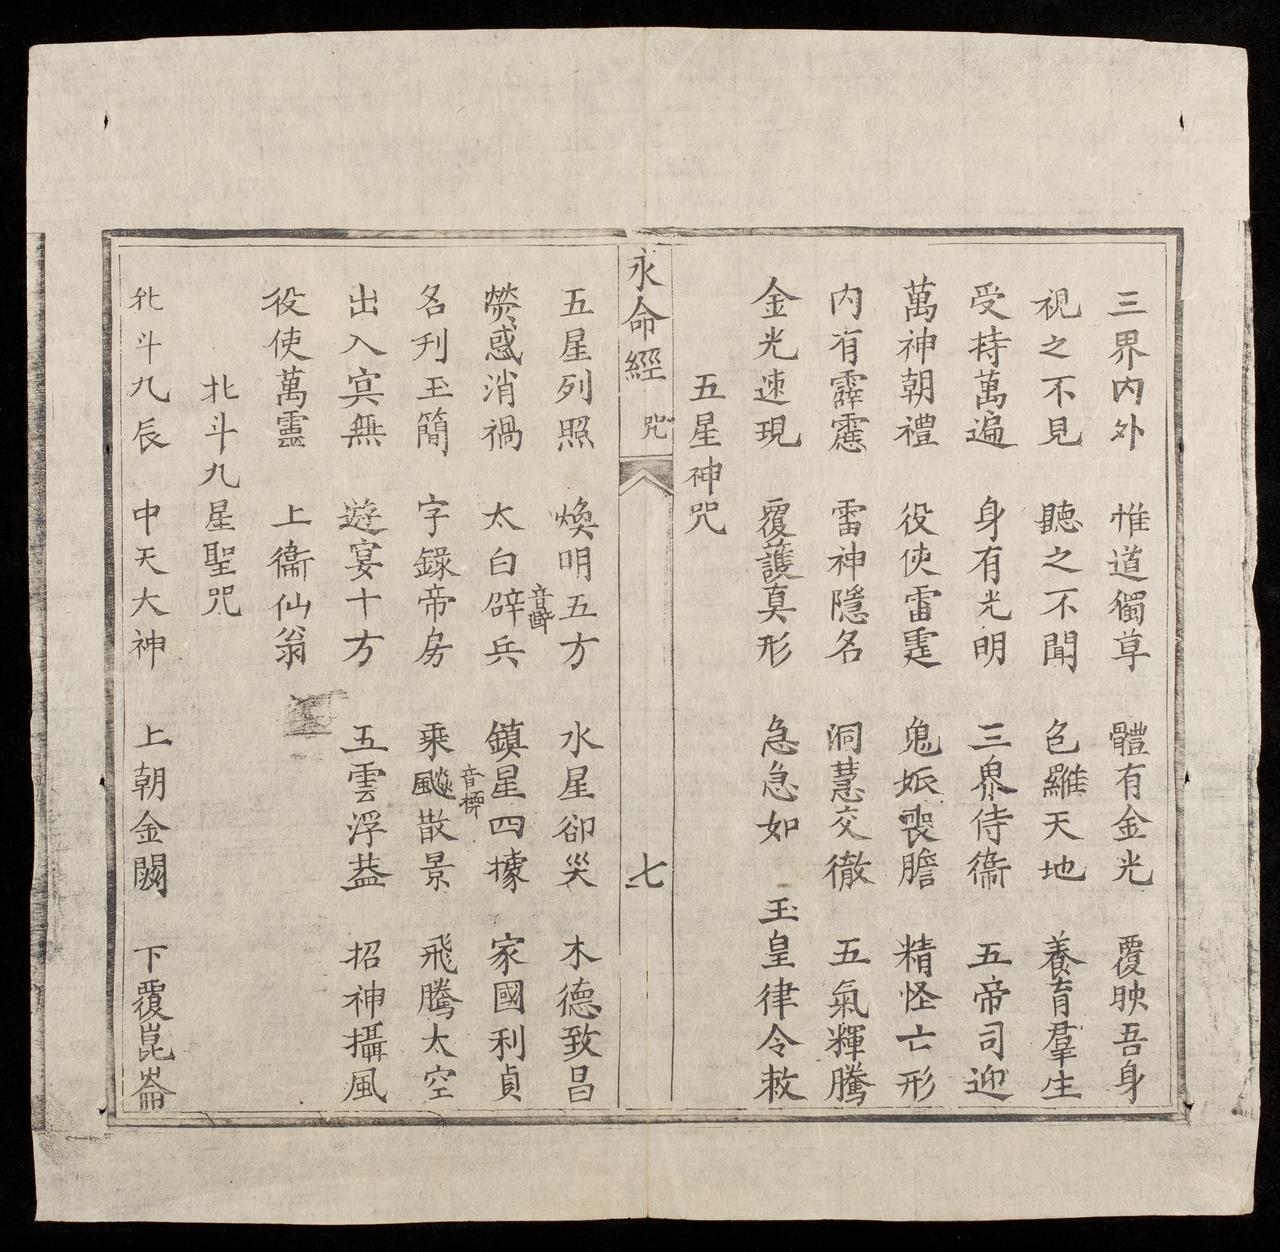 三界内外　惟道獨尊　體有金光　覆映吾身
視之不見　聽之不聞　包羅天地　養育羣生
受持萬遍　身有光明　三界侍衞　五帝司迎
萬神朝禮　役使雷霆　鬼妖喪膽　精怪亡形
内有霹靂　雷神隱名　洞慧交徹　五氣輝騰
金光速現　覆護真形　急急如　玉皇律令敕
五星神咒
永命經　咒　七
五星列照　煥明五方　水星卻災　木德致昌
熒惑消禍　太白辟兵　鎮星四據　家國利貞
音
名刋玉簡　字錄帝房　乘飈散景　飛騰太空
音標
出入冥無　遊宴十方　五雲浮蓋　招神攝風
役使萬靈　上衞仙翁
北斗九星聖咒
北斗九辰　中天大神　上朝金闕　下覆崑崙